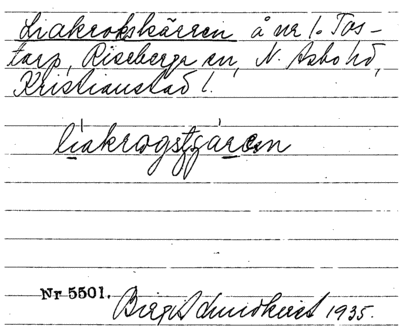 Liakrokskärren å nr 1. Tos-
tarp, Riseberga sn, N. Åsbo hd,
Kristianstad l.
liakrogstjären
Nr 5501.
Birgit Lundkvist 1935.